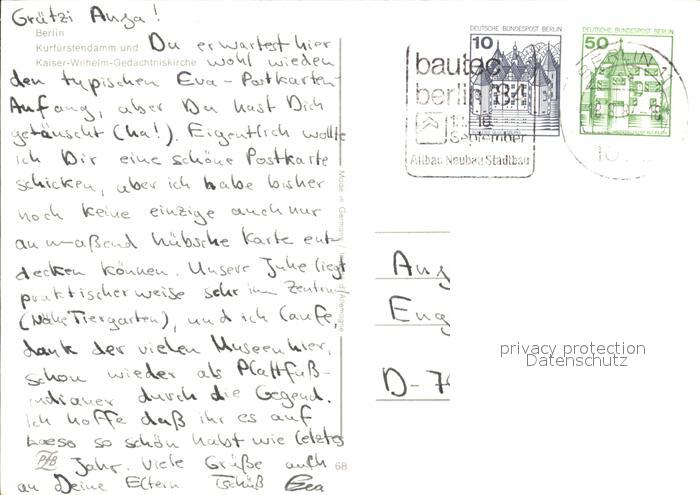 Grützi Anga!
Berlin
Kurfürstendamm und
Kaiser-Wilhelm-Gedächtniskirche
Du erwartest hier
wohl wieden
den typischen Eva-Postkarten-
Anfang, aber Du hast Dich
getäuscht (ha!). Eigentlich wollte
ich Dir eine schöne Postkarte
schicken, aber ich habe bisher
noch keine einzige auch nur
anmaßend hübsche Karte ent-
decken können. Unsere Juhe liegt
praktischerweise sehr im Zentrum
(Nähe Tiergarten), und ich laufe,
dank der vielen Museen hier,
schon wieder als Plattfuß-
indianer durch die Gegend.
Ich hoffe daß ihr es auf
so schön habt wie letztes
Jahr. Viele Grüße auch
an Deine Eltern Tschüß
PfB
68
Made in Germany
d'Allemagne
DEUTSCHE BUNDESPOST BERLIN
10
DEUTSCHE BUNDESPOST BERLIN
50
bautec
berlin '84
September
Altbau Neubau Stadtbau
BERLIN
Ang
Eng
D-7
privacy protection
Datenschutz